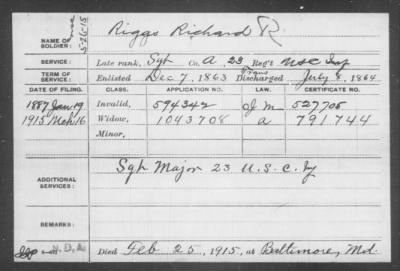 NAME OF SOLDIER: Riggs Richard R.
5-26-15
SERVICE: Late rank, Sgt Co. A 23 Reg't USC Inf
TERM OF SERVICE: Enlisted Dec 7, 1863 Trans Discharged July 8, 1864
DATE OF FILING. CLASS. APPLICATION NO. LAW. CERTIFICATE NO.
1887 Jan 19 Invalid, 594342 527706
1915 Mch 16 Widow, 1043708 a 791744
Minor,
ADDITIONAL SERVICES: Sgt Major 23 U.S.C. Inf
REMARKS:
Died Feb 25, 1915, at Baltimore, Md.